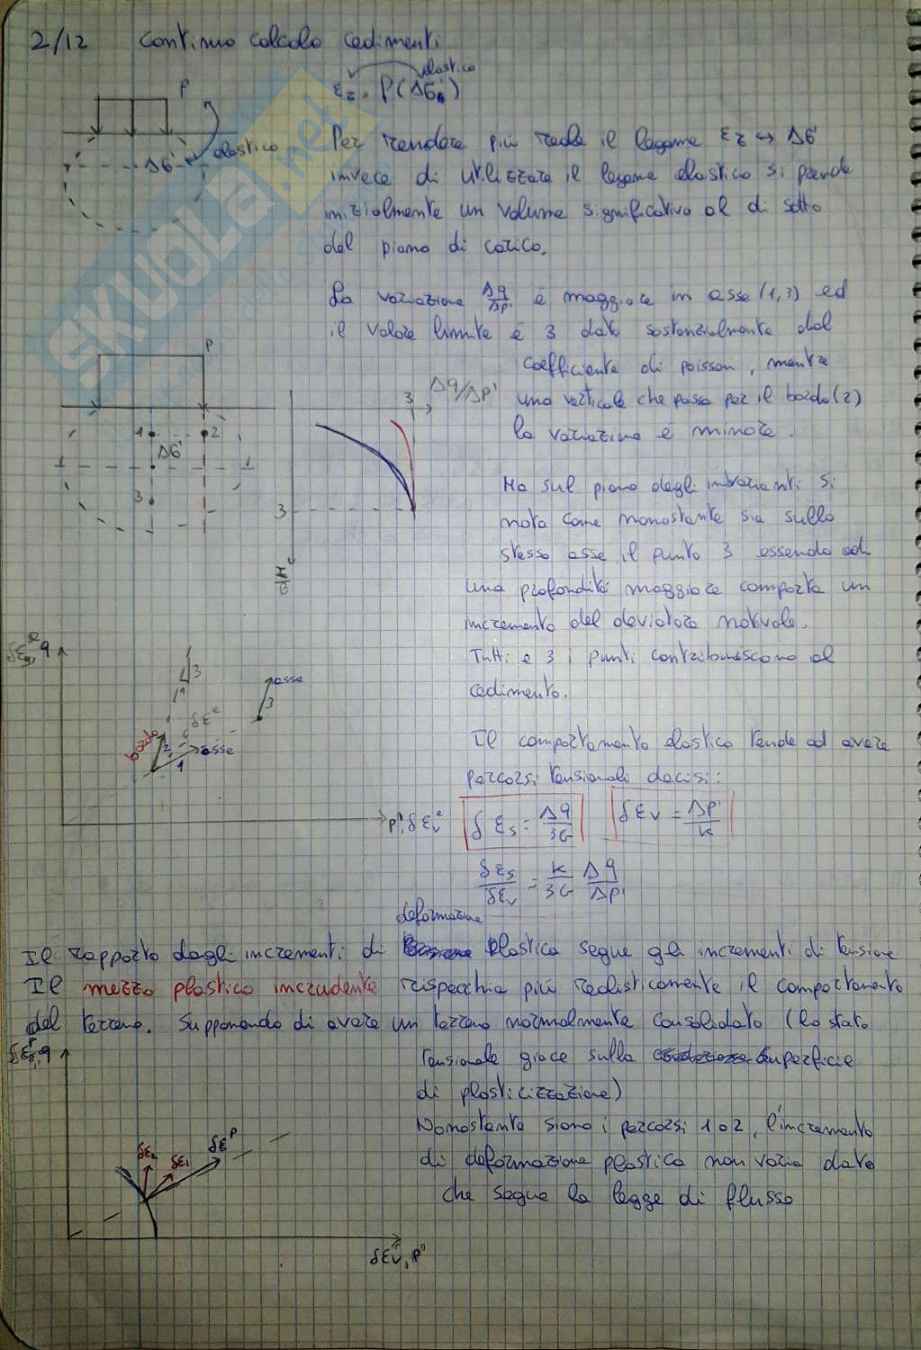 2/12 Continuo calcolo cedimenti
elastico
εz = P(Δσ')
P
Δσ' elastico
Per rendere più reale il legame εz ↔ Δσ'
invece di utilizzare il legame elastico si prende
inizialmente un volume significativo al di sotto
del piano di carico.
La variazione Δq/Δp' è maggiore in asse (1,3) ed
il valore limite è 3 dato sostanzialmente dal
coefficiente di poisson, mentre
una verticale che passa per il bordo (2)
la variazione è minore.
P
3 Δq/Δp'
1 2
Δσ'
3
3
Ma sul piano degli invarianti si
nota come nonostante sia sullo
stesso asse il punto 3 essendo ad
una profondità maggiore comporta un
incremento del deviatore notevole.
Tutti e 3 i punti contribuiscono al
cedimento.
3
asse
3
δε^e
bordo
2
asse
1
p', δεv^e
Il comportamento elastico tende ad avere
percorsi tensionali decisi:
δεs = Δq/3G δεv = Δp'/K
δεs/δεv = K/3G Δq/Δp'
deformazione
Il rapporto degli incrementi di elastica segue gli incrementi di tensione
Il mezzo plastico incrudente rispecchia più realisticamente il comportamento
del terreno. Supponendo di avere un terreno normalmente consolidato (lo stato
tensionale giace sulla superficie
di plasticizzazione)
Nonostante siano i percorsi 1 o 2, l'incremento
di deformazione plastica non varia dato
che segue la legge di flusso
δε2 δε1 δε^p